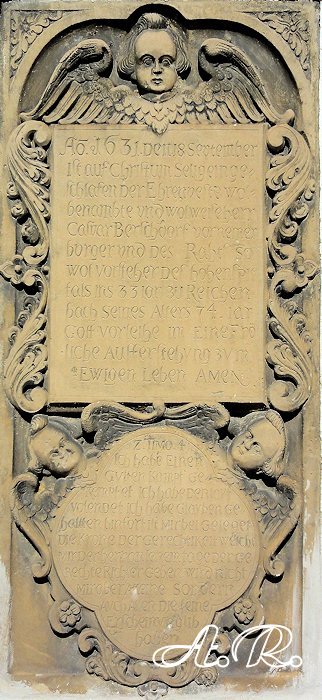 Aō. 1631. Den 18 September
Ist auf Christum Selig einge
schlafen Der Ehrnveste wol
benambte und wolweise herr
Caspar Berschdorf vornemer
bürger und des Rahts so
wol vorsteher des hohen
33 Jar zu Reichen
bach seines Alters 74 Jar
Gott vorleihe im Eine Frö
liche Aufferstehung zum
Ewigen Leben AMEN
2 Timo 4
Ich habe Einen
Guten Kampf ge
kempfet Ich habe den lauf
volendet Ich habe Glauben ge
halten hinfort ist mir beigeleget
die Krone der Gerechtikeit welche
mir der herr an Jenem tage der ge
rechte Richter geben wird nicht
mir aber alleine Sondern
Auch allen die seine
Erscheinung lieb
haben
A. R.